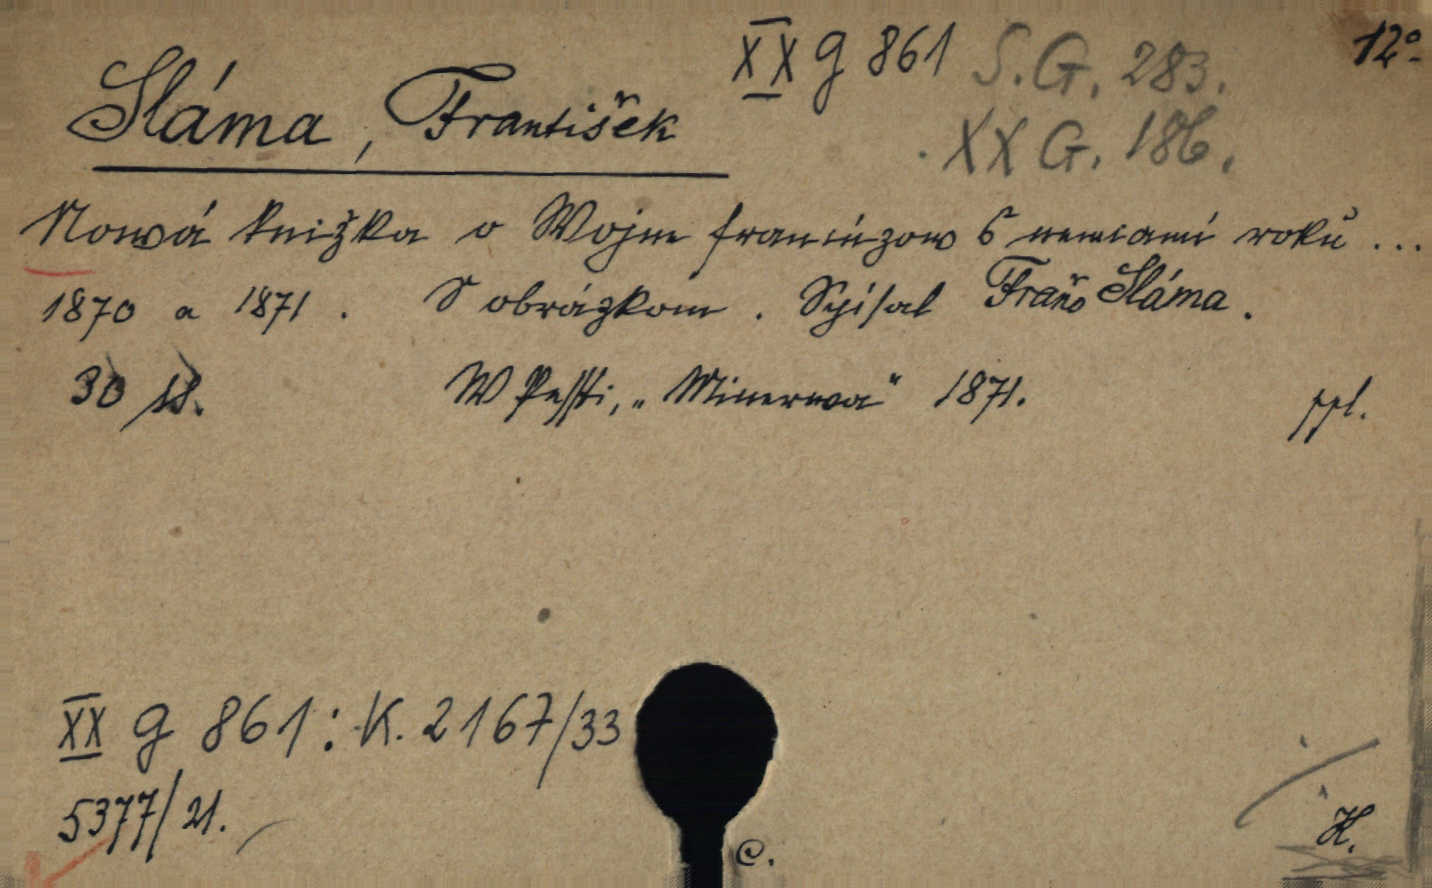 XX g 861 S. G. 283. 12°
Sláma, František
XX G. 186.
Nowá knižka o Wojne francúzow S nemcami roků ...
1870 a 1871. S obrázkom. Spisal Fraňo Sláma.
30 W Pešti, „Minerwa" 1871. ppl.
XX g 861: K. 2167/33
5377/21.
H.
C.